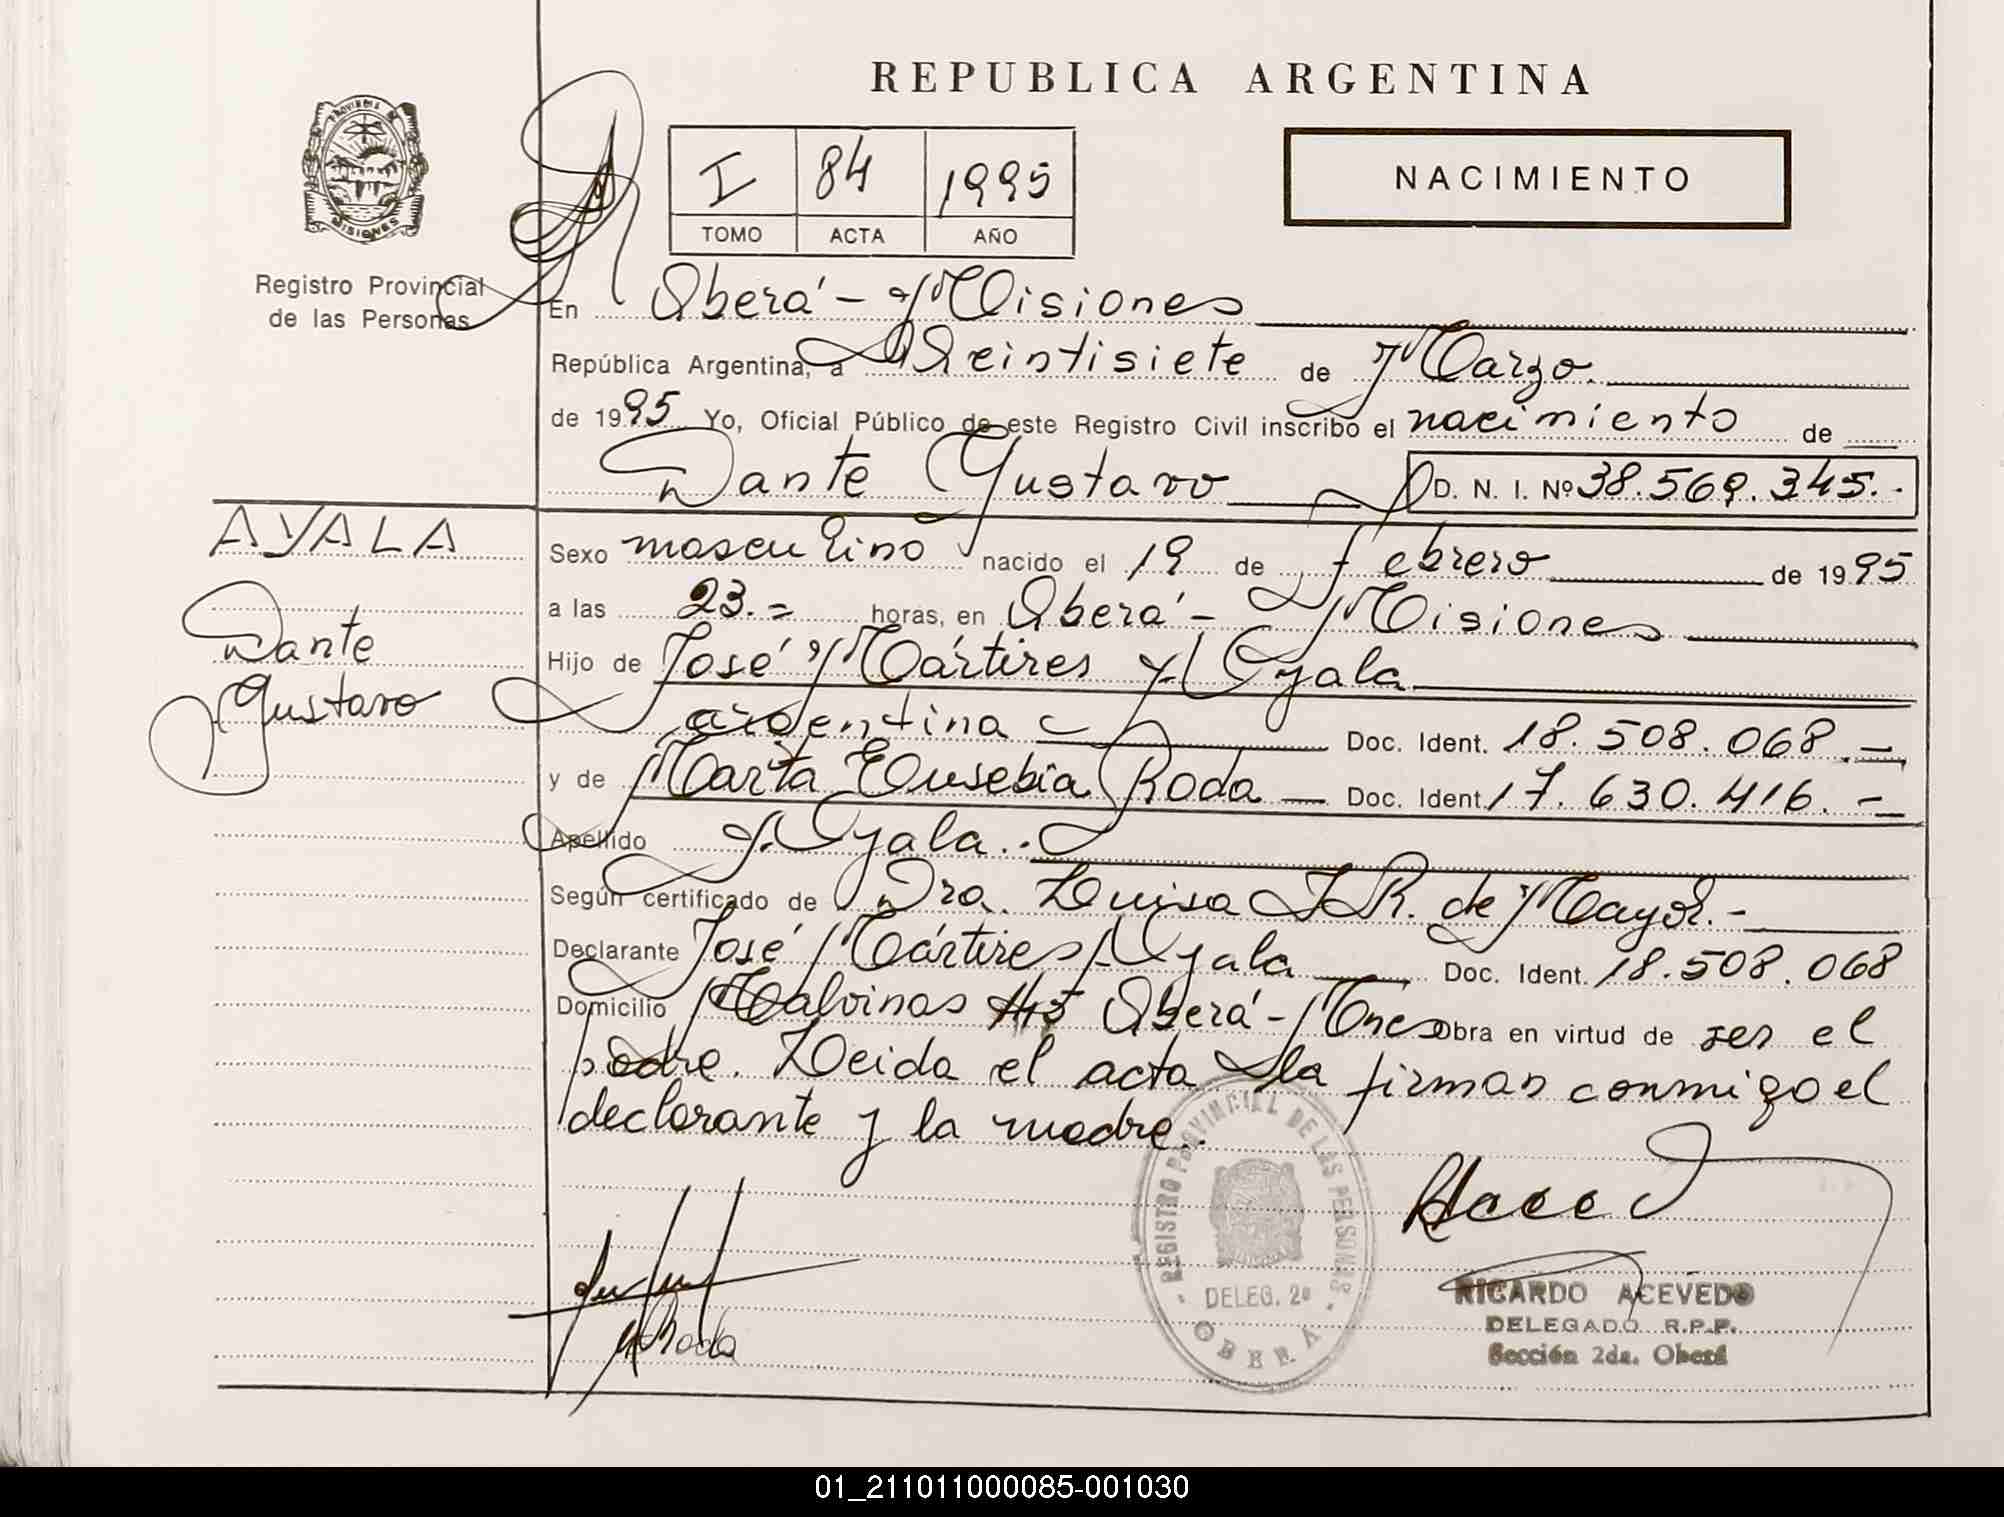 REPUBLICA ARGENTINA
PROVINCIA DE
MISIONES
Registro Provincial
de las Personas
I 84 1995
TOMO ACTA AÑO
NACIMIENTO
En Oberá - Misiones
República Argentina, a Veintisiete de Marzo.
de 1995 Yo, Oficial Público de este Registro Civil inscribo el nacimiento de
Dante Gustavo D. N. I. Nº 38.569.345.-
AYALA
Dante
Gustavo
Sexo masculino nacido el 19 de febrero de 1995
a las 23.= horas, en Oberá - Misiones
Hijo de José Mártires Ayala
argentina Doc. Ident. 18.508.068.-
y de Marta Eusebia Roda Doc. Ident. 17.630.416.-
Apellido Ayala..
Según certificado de Dra. Luisa J R. de Mayor.-
Declarante José Mártires Ayala Doc. Ident. 18.508.068
Domicilio Malvinas Oberá - Mnes Obra en virtud de ser el
padre. Leida el acta la firman conmigo el
declarante y la madre..
REGISTRO PROVINCIAL DE LAS PERSONAS
DELEG. 2ª
OBERA
Roda
RICARDO ACEVEDO
DELEGADO R.P.P.
Sección 2da. Oberá
01_211011000085-001030